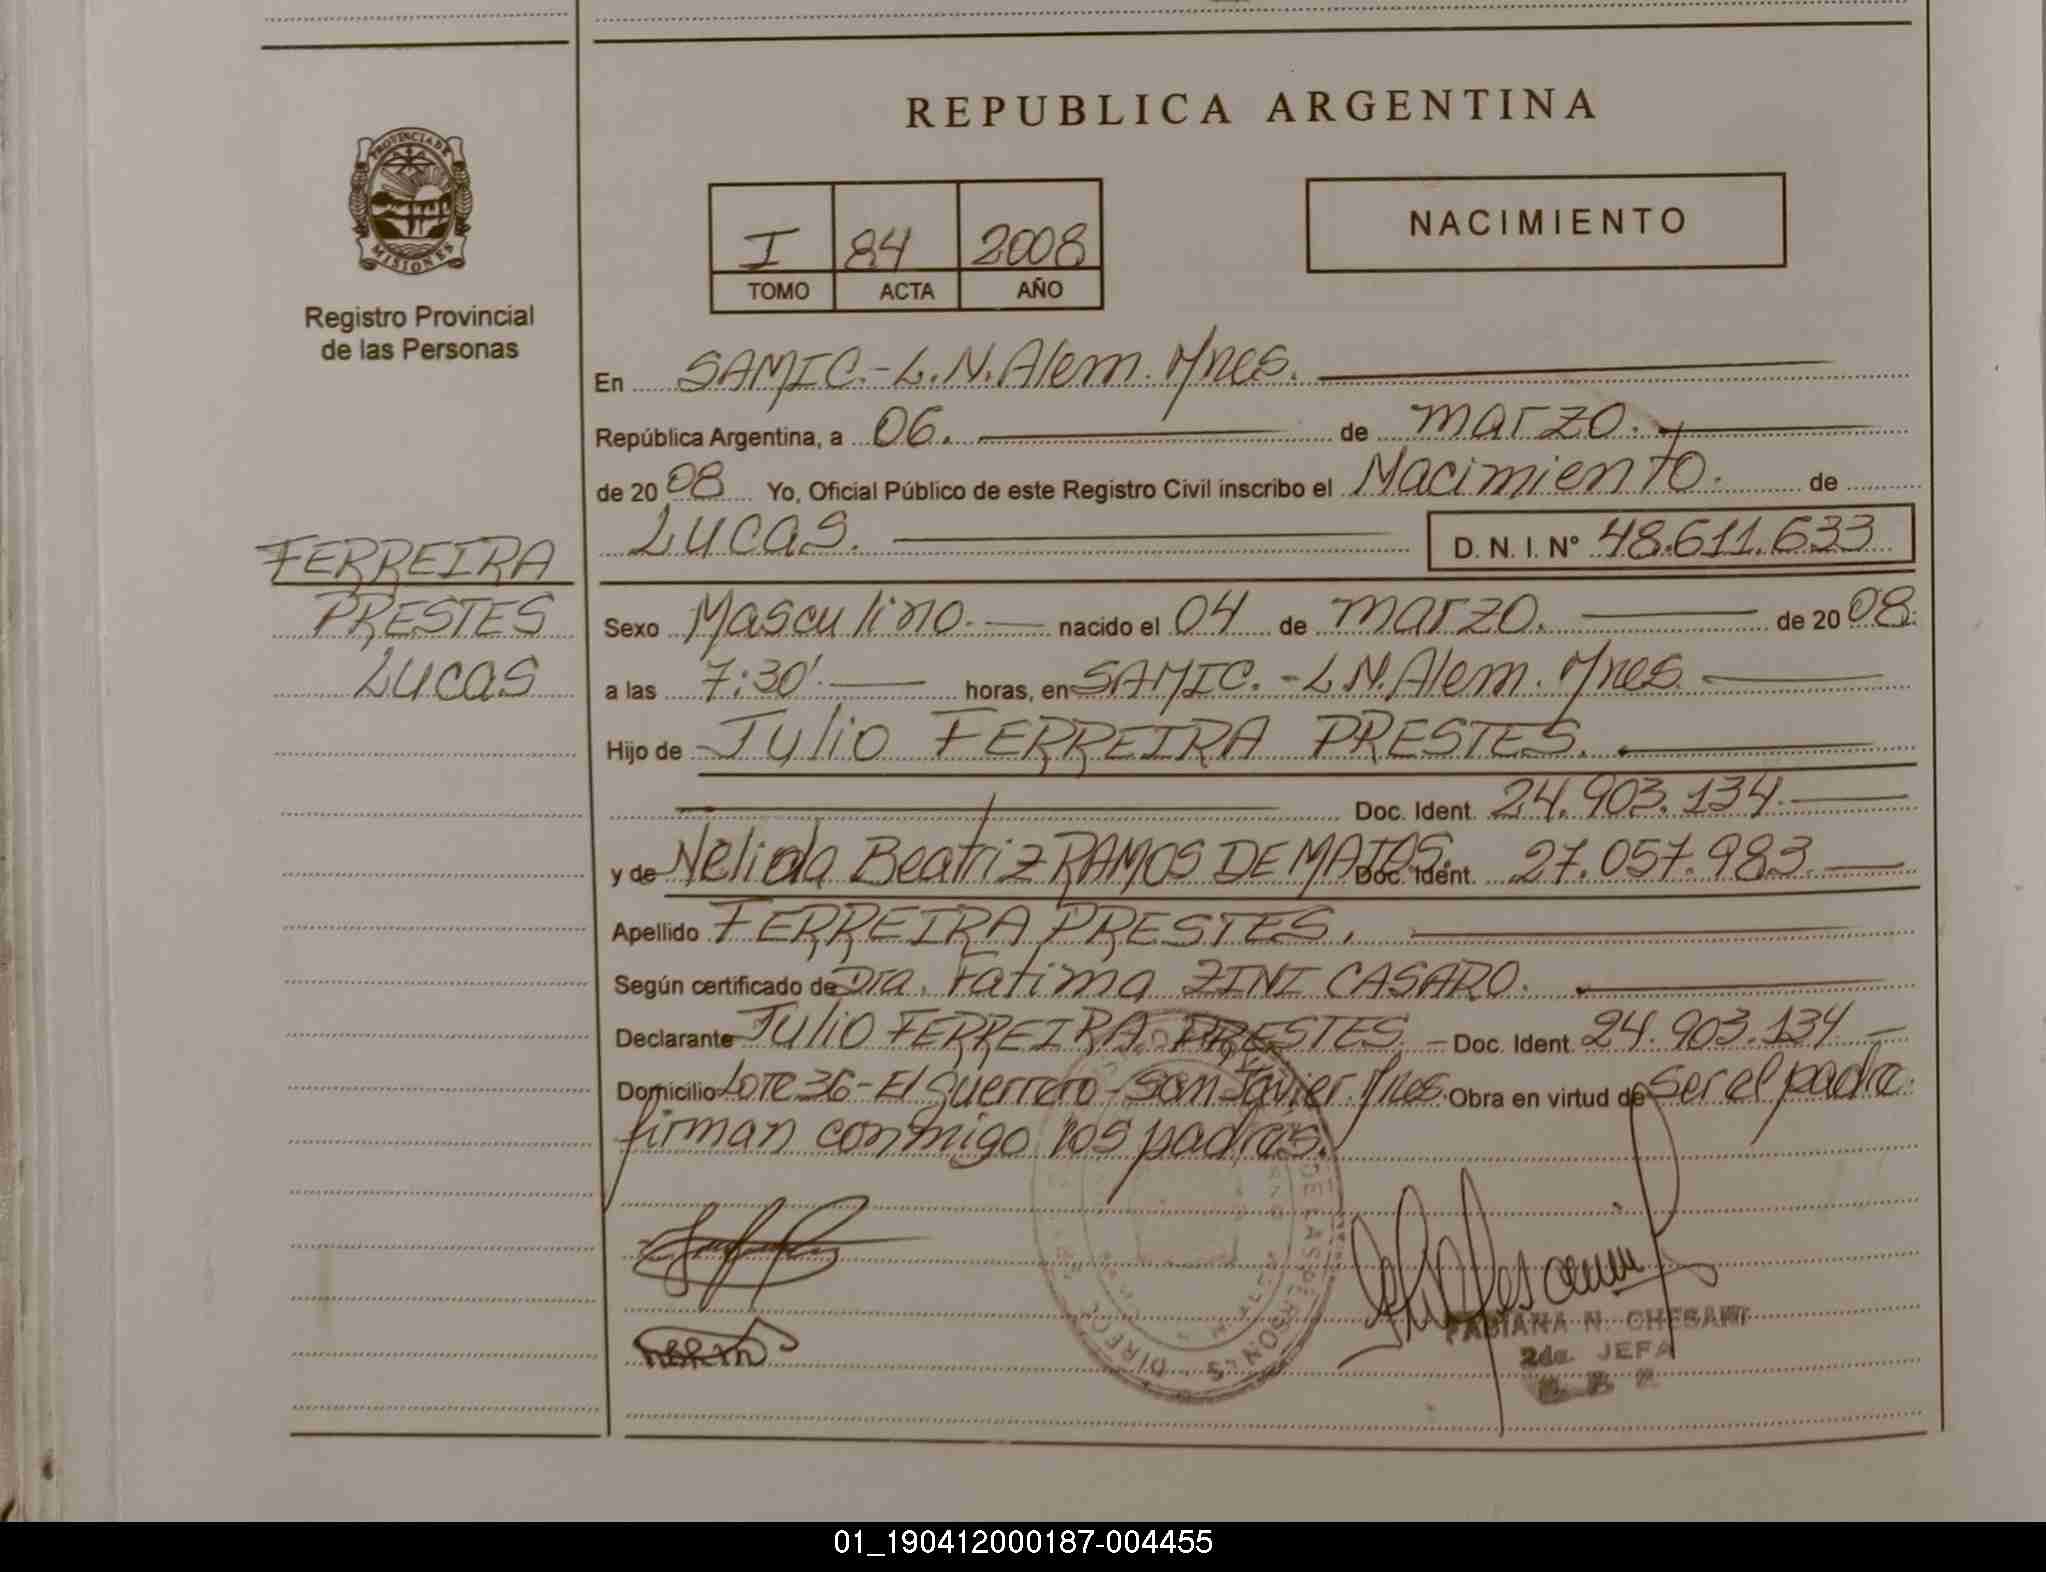 REPUBLICA ARGENTINA
PROVINCIA DE
MISIONES
Registro Provincial
de las Personas
I 84 2008
TOMO ACTA AÑO
NACIMIENTO
En SAMIC.-L.N.Alem. Mnes.
República Argentina, a 06. de marzo.
de 2008 Yo, Oficial Público de este Registro Civil inscribo el Nacimiento. de
Lucas. D. N. I. Nº 48.611.633
FERREIRA
PRESTES
Lucas
Sexo Masculino. nacido el 04 de marzo. de 2008.
a las 7:30' horas, en SAMIC.-L.N.Alem. Mnes
Hijo de Julio FERREIRA PRESTES.
Doc. Ident. 24.903.134.
y de Nelida Beatriz RAMOS DE MATOS. Doc. Ident. 27.057.983.
Apellido FERREIRA PRESTES.
Según certificado de Dra. Fatima ZINI CASARO.
Declarante Julio FERREIRA PRESTES. Doc. Ident. 24.903.134.
Domicilio Lote 36-El Guerrero-San Javier. Mnes. Obra en virtud de ser el padre.
firman conmigo los padres.
FABIANA N.
2da. JEFA
01_190412000187-004455